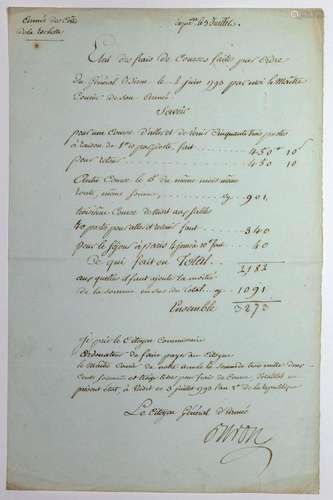 Armée des Côtes
de la Rochelle
du 3 Juillet.
Etat des frais de Courses faites par ordre
du Général Biron le 5 juin 1793 par
Courier de son Armée
Savoir
pour une Course d'aller et de venir Cinquante trois postes
à raison de 8" 10 par poste fait 450" 10
pour retour 450 10
Autre Course le du même mois même
route, même somme, cy 901
troisième Course de Niort aux Sables
40 postes pour aller et retour fait 340
pour le séjour à paris 4 jours à 10" fait 40
Ce qui fait en Total 2182
auxquels il faut ajouter la moitié
de la somme en sus du total cy 1091
Ensemble 3273
Je prie le Citoyen Commissaire
Ordonnateur de faire payer au Citoyen
le Courier de notre armée la somme de trois mille deux
Cents soixante et treize livres pour frais de Course détaillés au
présent état, à Niort ce 3 juillet 1793 l'an 2e de la république
Le Citoyen Général d'Armée
Biron